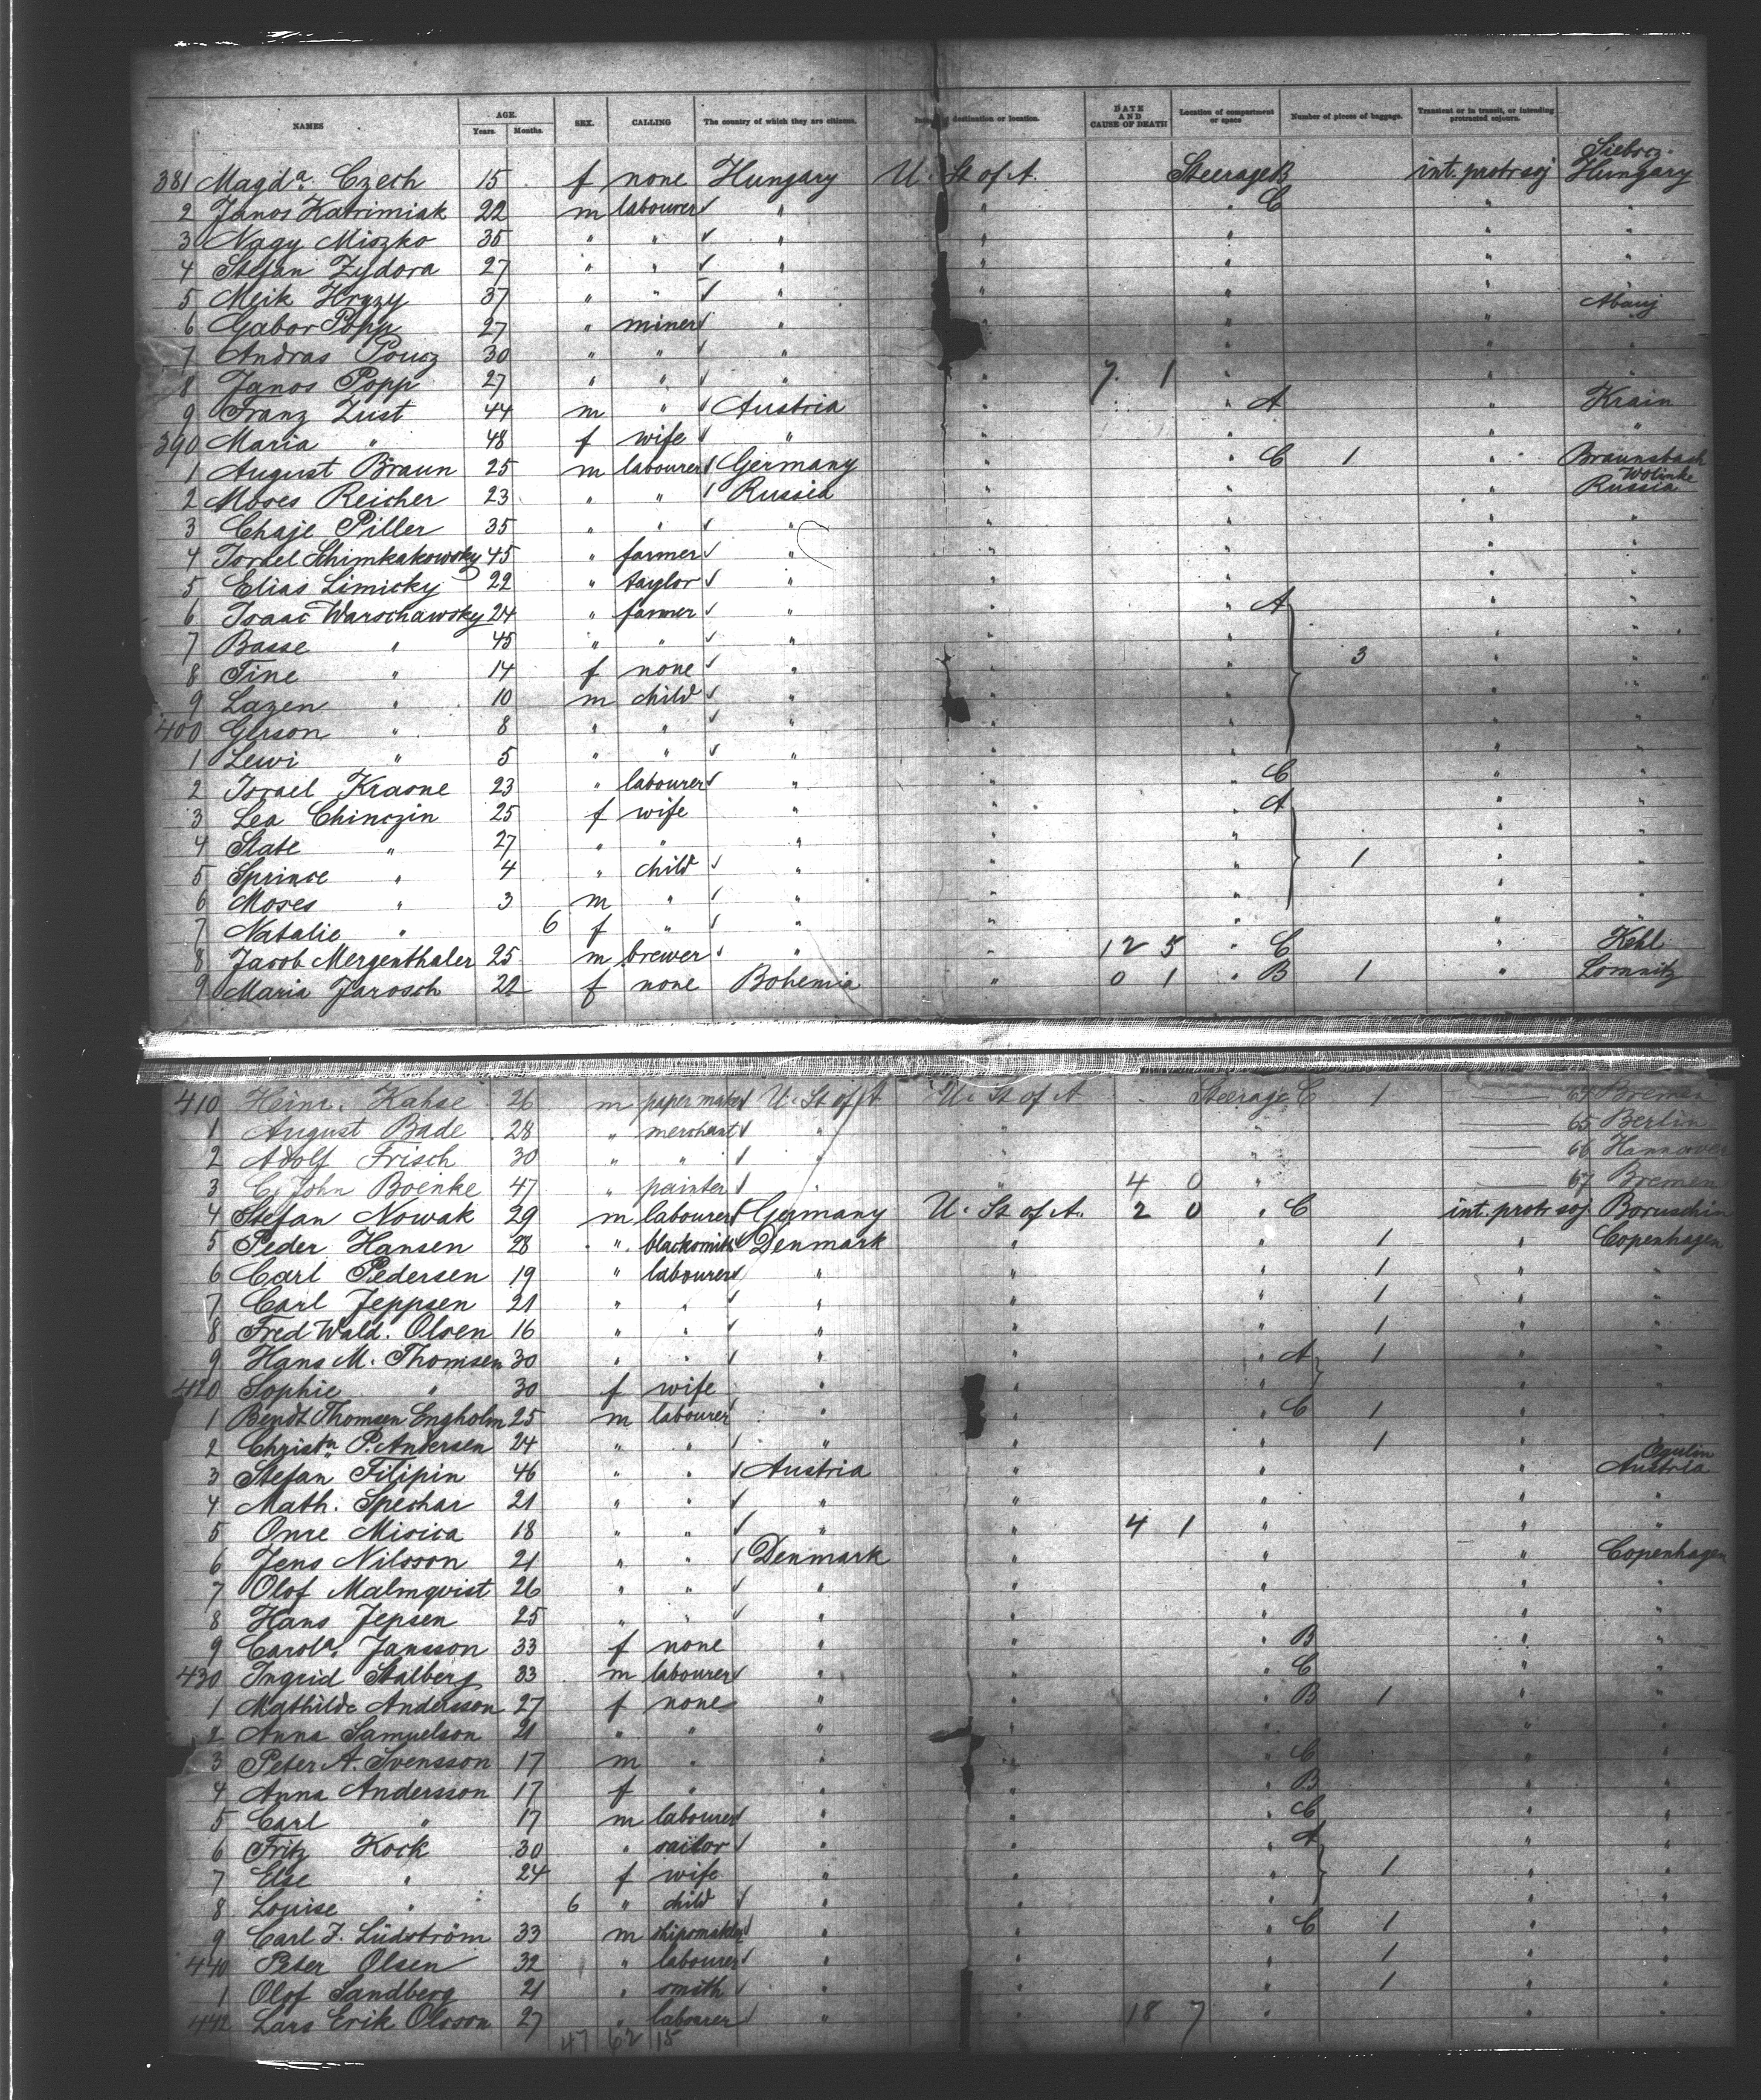 NAMES AGE. Years. Months. SEX. CALLING The country of which they are citizens. destination or location. DATE AND CAUSE OF DEATH Location of compartment or space Number of pieces of baggage. Transient or in transit, or intending protracted sojourn.
381 Magda. Czech 15 f none Hungary U. St of A. Steerage B int. protr soj Hungary
2 Janos Katrimiak 22 m labourer " " " C " "
3 Nagy Miszko 35 " " " " " " "
4 Stefan Zydora 27 " " " " " " "
5 Meik Hrgzy 37 " " " " " " Abauj
6 Gabor Popp 27 " miner " " " " "
7 Andras Poucz 30 " " " " " " "
8 Janos Popp 27 " " " " 7 1 " " "
9 Franz Zust 44 m " Austria " " A " Krain
390 Maria " 48 f wife " " " " "
1 August Braun 25 m labourer Germany " " C 1 " Braunsbach
2 Moses Reicher 23 " " Russia " " " Wolinke Russia
3 Chaje Piller 35 " " " " " " "
4 Isrdel Schimkakowsky 45 " farmer " " " " "
5 Elias Limicky 22 " taylor " " " " "
6 Isaac Warschawsky 24 " farmer " " " A " "
7 Basse " 45 " " " " " " "
8 Tine " 14 f none " " " 3 " "
9 Lazen " 10 m child " " " " "
400 Gerson " 8 " " " " " " "
1 Lewi " 5 " " " " " " "
2 Israel Krasne 23 " labourer " " " C " "
3 Lea Chinczin 25 f wife " " " A " "
4 State " 27 " " " " " " "
5 Sprince " 4 " child " " " 1 " "
6 Moses " 3 m " " " " " "
7 Natalie " 6 f " " " " " "
8 Jacob Mergenthaler 25 m brewer " " 12 5 " C " Kehl
9 Maria Jarosch 22 f none Bohemia " 0 1 " B 1 " Lomnitz
410 Heinr. Kahse 26 m paper maker U. St of A U. St of A Steerage C 1 64 Bremen
1 August Bade 28 " merchant " " " 65 Berlin
2 Adolf Frisch 30 " " " " " 66 Hannover
3 C. John Boenke 47 " painter " " 4 0 " 67 Bremen
4 Stefan Nowak 29 m labourer Germany U. St of A. 2 0 " C int. protr soj Boruschin
5 Peder Hansen 28 " blacksmith Denmark " " 1 " Copenhagen
6 Carl Pedersen 19 " labourer " " " 1 " "
7 Carl Jeppsen 21 " " " " " 1 " "
8 Fred Wald. Olsen 16 " " " " " 1 " "
9 Hans M. Thomsen 30 " " " " " A 1 " "
420 Sophie " 30 f wife " " " " "
1 Bendt Thomsen Engholm 25 m labourer " " " C 1 " "
2 Christn P. Andersen 24 " " " " " 1 " "
3 Stefan Filipin 46 " " Austria " " " Ogulin Austria
4 Math. Spechar 21 " " " " " " "
5 Onre Misica 18 " " " " 4 1 " " "
6 Jens Nilsson 21 " " Denmark " " " Copenhagen
7 Olof Malmqvist 26 " " " " " " "
8 Hans Jepsen 25 " " " " " " "
9 Carola. Jansson 33 f none " " " B " "
430 Ingrid Stalberg 33 m labourer " " " C " "
1 Mathilde Andersson 27 f none " " " B 1 " "
2 Anna Samuelson 21 " " " " " " "
3 Peter A. Svensson 17 m " " " " C " "
4 Anna Andersson 17 f " " " " B " "
5 Carl " 17 m labourer " " " C " "
6 Fritz Kock 30 " sailor " " " A " "
7 Else " 24 f wife " " " 1 " "
8 Louise " 6 " child " " " " "
9 Carl J. Lüdström 33 m shipsmakler " " " C 1 " "
440 Peter Olsen 32 " labourer " " " 1 " "
1 Olof Sandberg 21 " smith " " " 1 " "
442 Lars Erik Olsson 27 " labourer " " 18 7 " " "
47 62 15